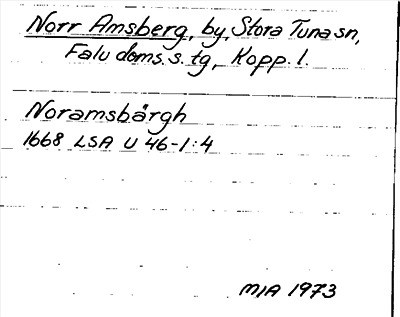 Norr Amsberg, by, Stora Tuna sn,
Falu doms. s. tg, Kopp. l.
Noramsbårgh
1668 LSA U 46-1:4
MIA 1973